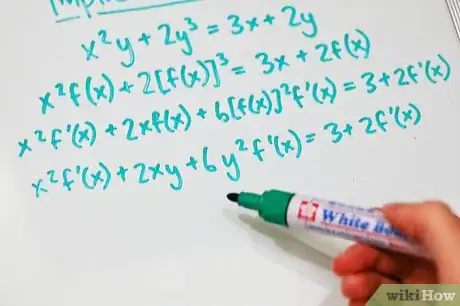 x²y + 2y³ = 3x + 2y
x²f(x) + 2[f(x)]³ = 3x + 2f(x)
x²f'(x) + 2xf(x) + 6[f(x)]²f'(x) = 3 + 2f'(x)
x²f'(x) + 2xy + 6y²f'(x) = 3 + 2f'(x)
White
wikiHow